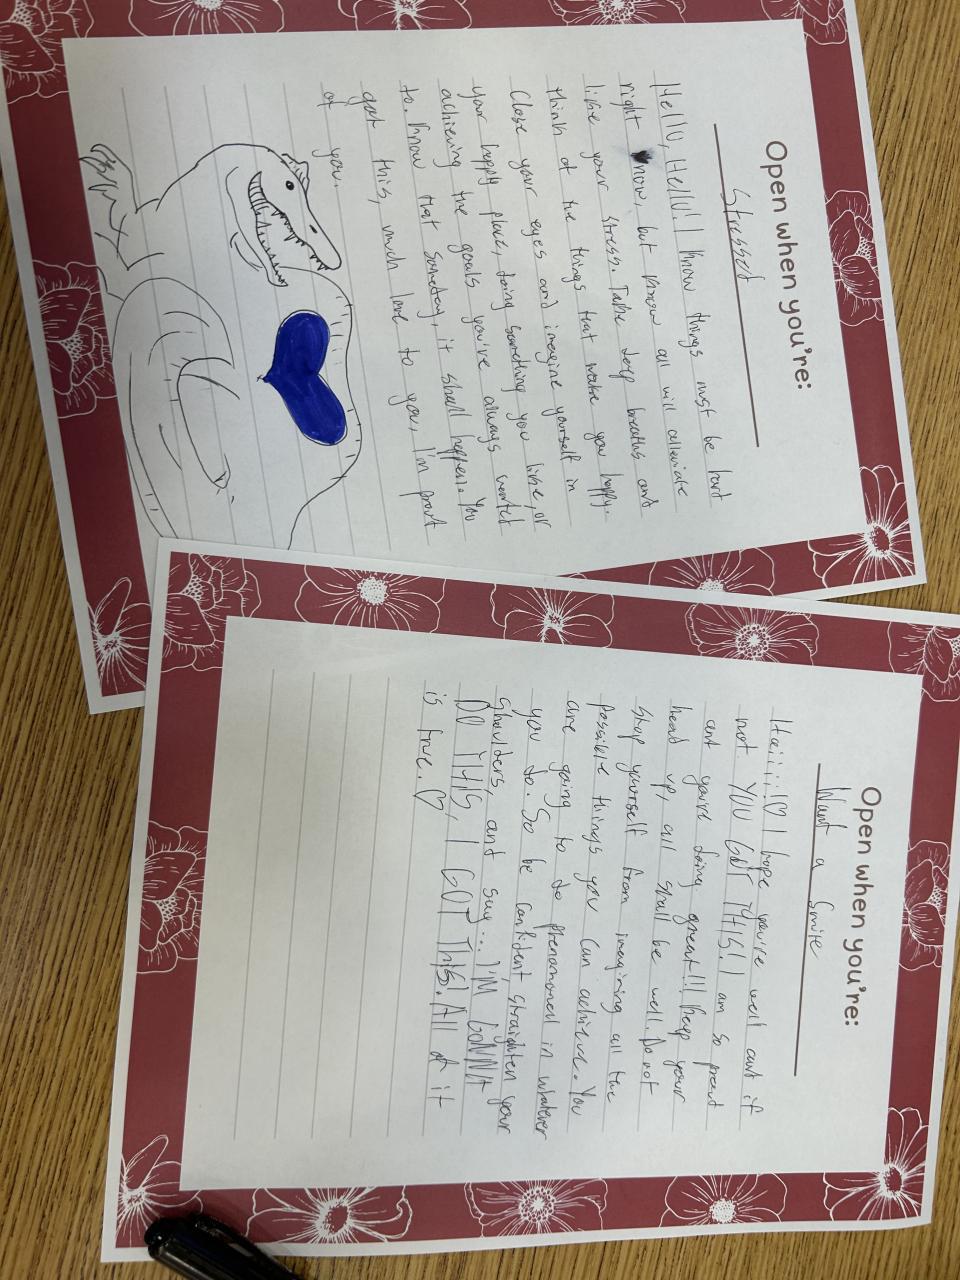 Open when you're:
Stressed
Hello, Hello! I know things must be hard
right now, but know all will alleviate
like your stress. Take deep breaths and
think of the things that make you happy.
Close your eyes and imagine yourself in
your happy place, doing something you like, or
achieving the goals you've always wanted
to. Know that someday, it shall happen. You
got this, much love to you, I'm proud
of you.
Open when you're:
Want a Smile
Haiiiii!♡ I hope you're well and if
not YOU GOT THIS! I am so proud
and you're doing great!!! Keep your
head up, all shall be well. Do not
stop yourself from imagining all the
possible things you can achieve. You
are going to do phenomenal in whatever
you do. So be confident, straighten your
shoulders, and say... I'M GONNA
DO THIS, I GOT THIS. All of it
is true. ♡